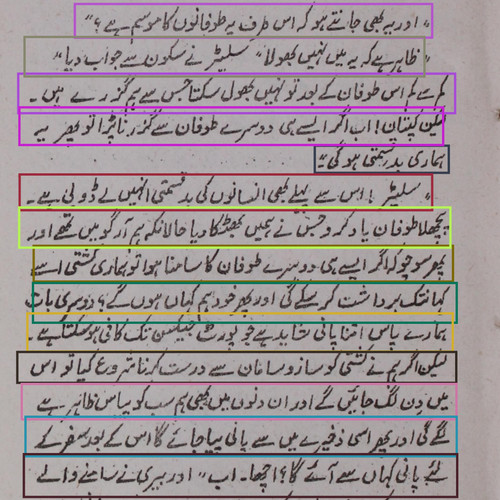 "اور یہ بھی جانتے ہو کہ اس طرف یہ طوفانوں کا موسم ہے؟"
"ظاہر ہے کہ یہ میں نہیں بھولا" سلیٹر نے سکون سے جواب دیا"
کم سے کم اس طوفان کے بعد تو نہیں بھول سکتا جس سے ہم گزرے ہیں۔
لیکن کپتان! اب اگر ایسے ہی دوسرے طوفان سے گزرنا پڑا تو پھر یہ
ہماری بدقسمتی ہوگی"
"سلیٹر! اس سے پہلے بھی انسانوں کی بدقسمتی انہیں لے ڈوبی ہے۔
پچھلا طوفان یاد کرو جس نے ہمیں بھٹکا دیا حالانکہ ہم آرگو میں تھے اور
پھر سوچو کہ اگر ایسے ہی دوسرے طوفان کا سامنا ہوا تو ہماری کشتی اسے
کہانتک برداشت کر سکے گی اور پھر خود ہم کہاں ہوں گے؟ دوسری بات
ہمارے پاس اتنا پانی شاید ہے جو پورٹ جیکسن تک کافی ہو سکتا ہے۔
لیکن اگر ہم نے کشتی کو ساز و سامان سے درست کرنا شروع کیا تو اس
میں دن لگ جائیں گے اور ان دنوں میں بھی ہم سب کو پیاس ظاہر ہے
لگے گی اور پھر اسی ذخیرے میں سے پانی پیا جائے گا اس کے بعد سفر کے
لئے پانی کہاں سے آئے گا؟ اچھا۔ اب" اور بیری نے سامنے والے